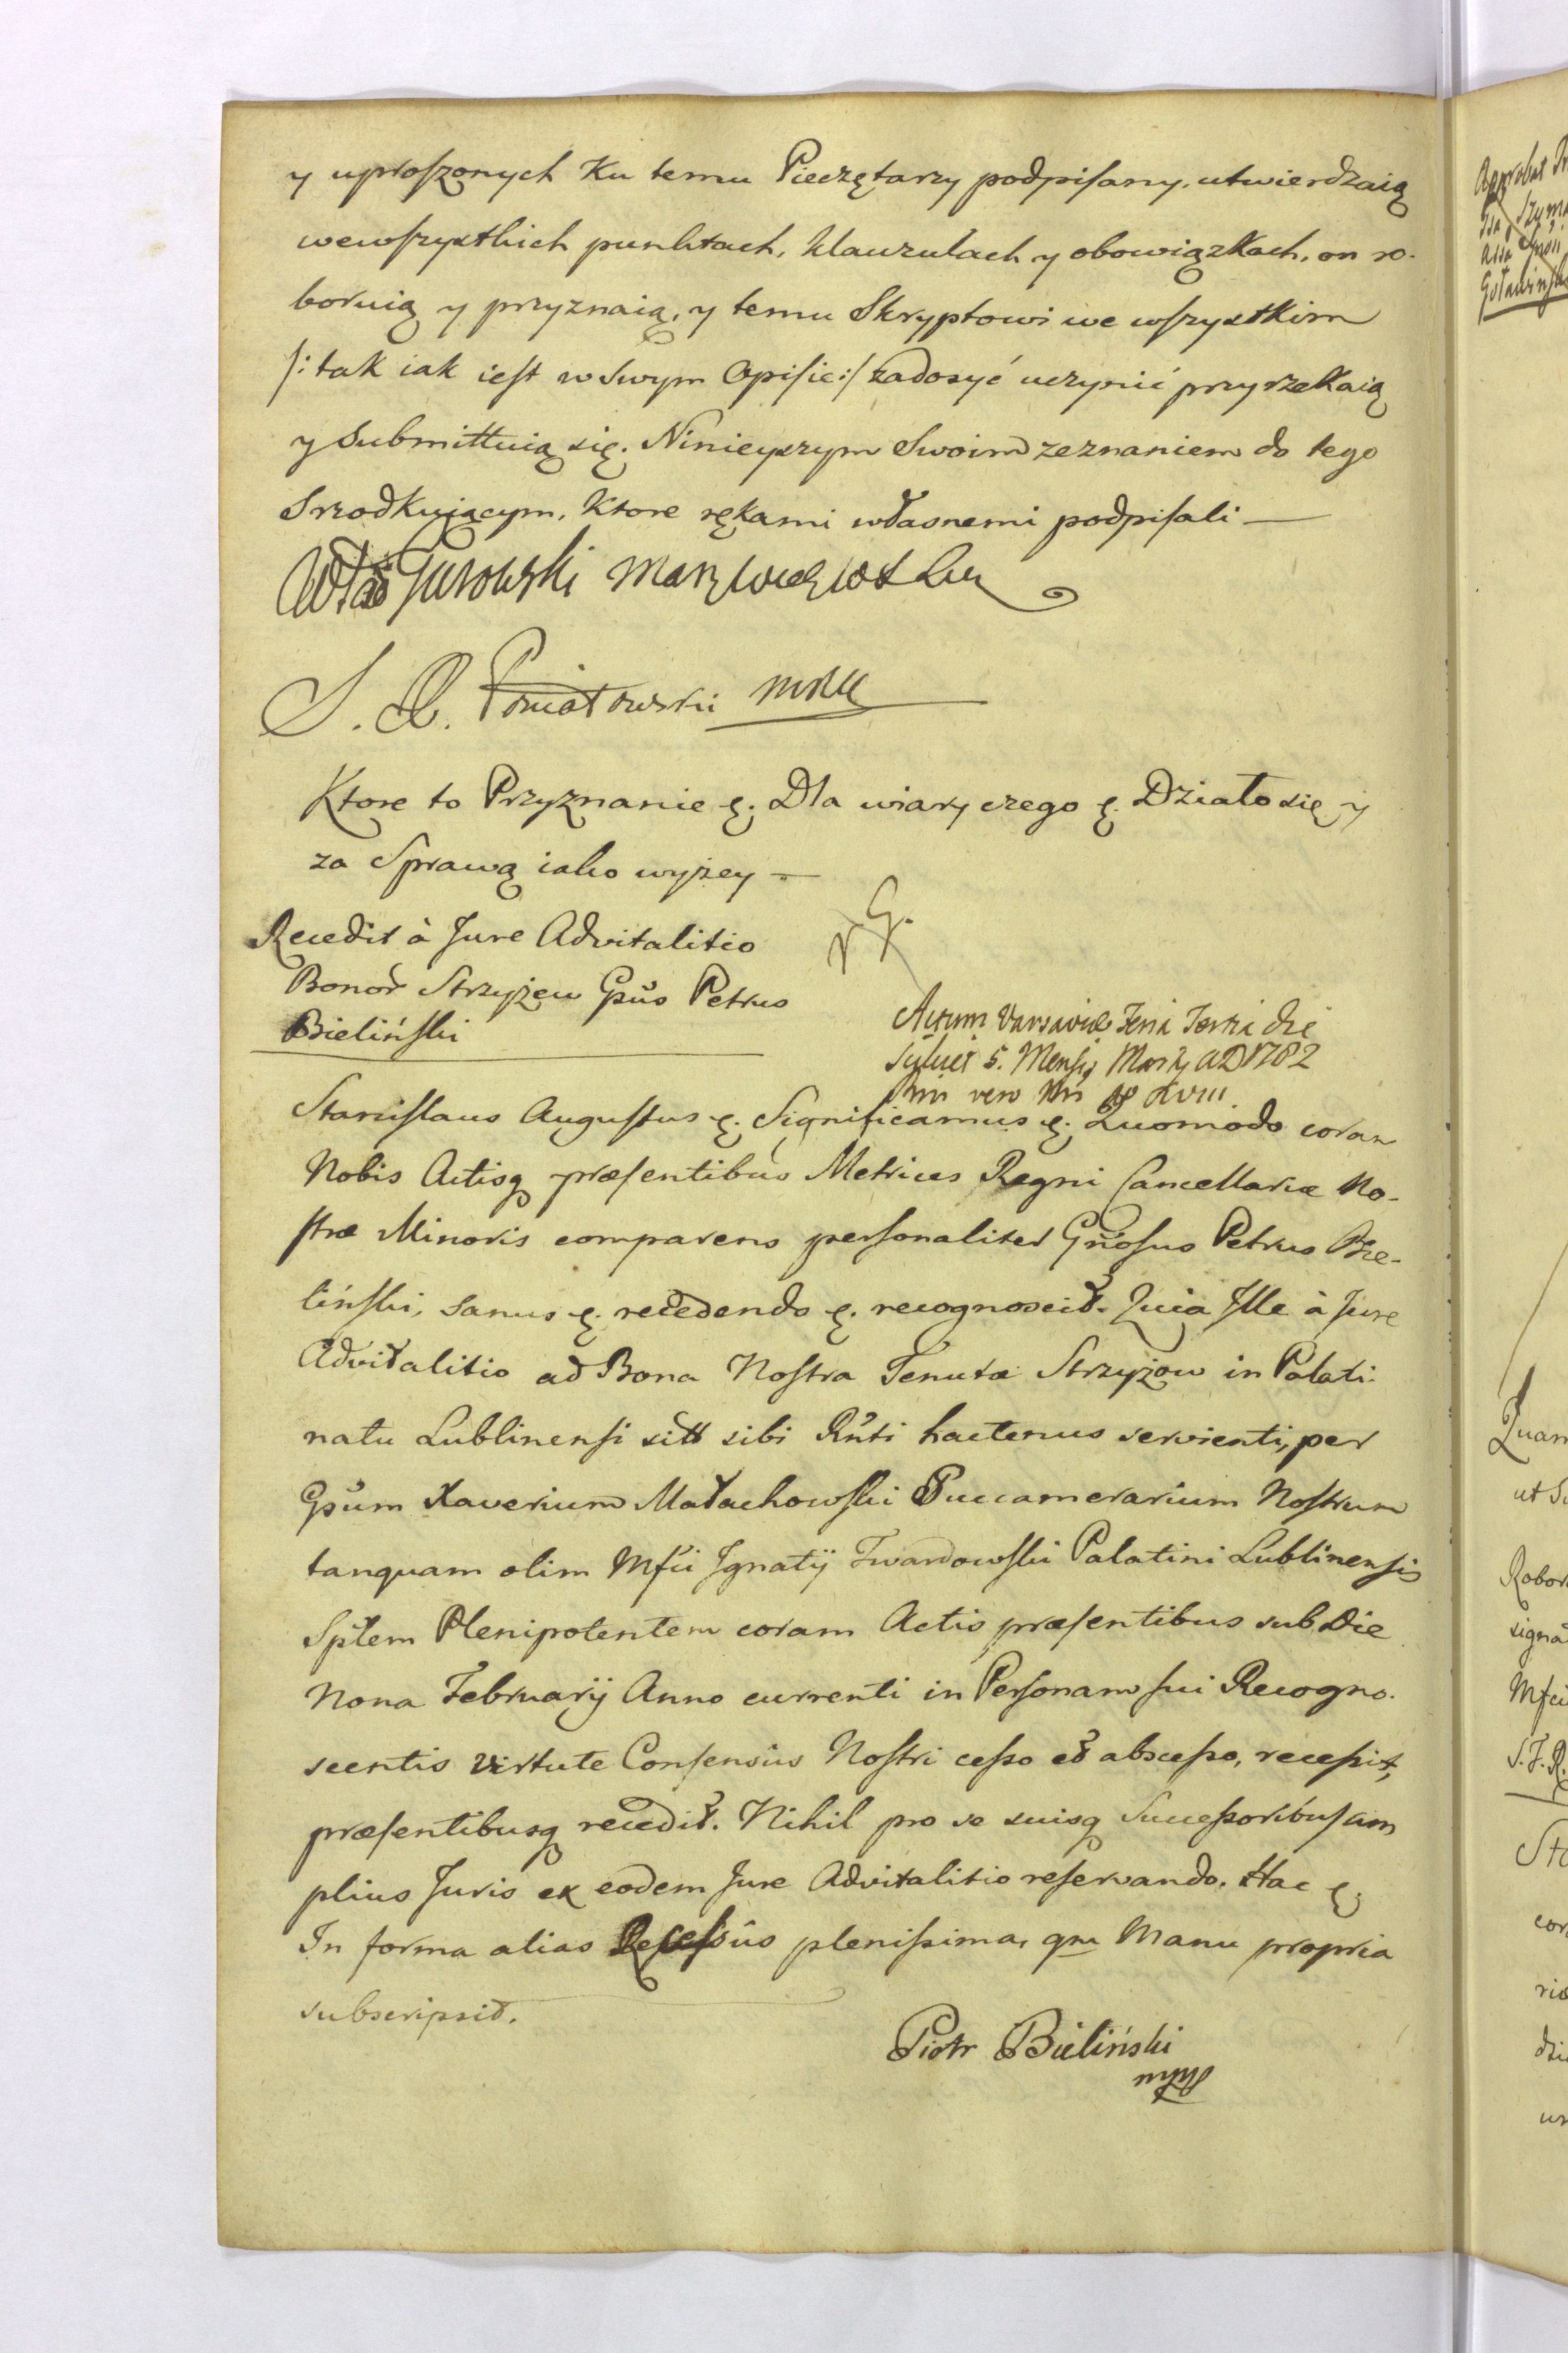 y uproszonych Ku temu Pieczętarzy podpisany, utwierdzaią
wewszystkich punktach, klauzulach y obowiązkach, on ro-
boruią y przyznaią, y temu Skryptowi we wszystkim
/: tak iak iest w Swym Opisie :/ zadosyć uczynić przyrzekaią
y Submittuią się. Ninieyszym Swoim zeznaniem do tego
Srzodkuiącym, Ktore rękami własnemi podpisali —
Gurowski
S. A. Poniatowski
Ktore to Przyznanie &. Dla wiary czego &. Działo się y
za Sprawą iako wyżey —
Recedit à Jure Advitalitio
Bonor Strzyżew Gsus Petrus
Bieliński
Actum Varsaviæ Feria Tertia die
Scilicet 5. Mensis Martij AD 1782
Rni vero Nri XVIII.
Stanislaus Augustus &. Significamus &. Quomodo coram
Nobis Actisq præsentibus Metrices Regni Cancellariæ No-
stræ Minoris comparens personaliter Gnosus Petrus Bie-
liński, sanus &. recedendo &. recognoscit. Quia Ille à Jure
Advitalitio ad Bona Nostra Tenutæ Strzyżow in Palati-
natu Lublinensi sitt sibi Rnti hactenus servienti, per
Gsum Xaverium Małachowski Succamerarium Nostrum
tanquam olim Mfci Ignatij Twardowski Palatini Lublinensis
Splem Plenipotentem coram Actis præsentibus sub Die
Nona Februarij Anno currenti in Personam sui Recogno-
scentis virtute Consensus Nostri cesso et abscesso, recessit,
præsentibusq recedit. Nihil pro se suisq Successoribus am
plius Juris ex eodem Jure Advitalitio reservando. Hac &
In forma alias Recessûs plenissima, qm Manu propria
subscripsit.
Piotr Bieliński
mpp